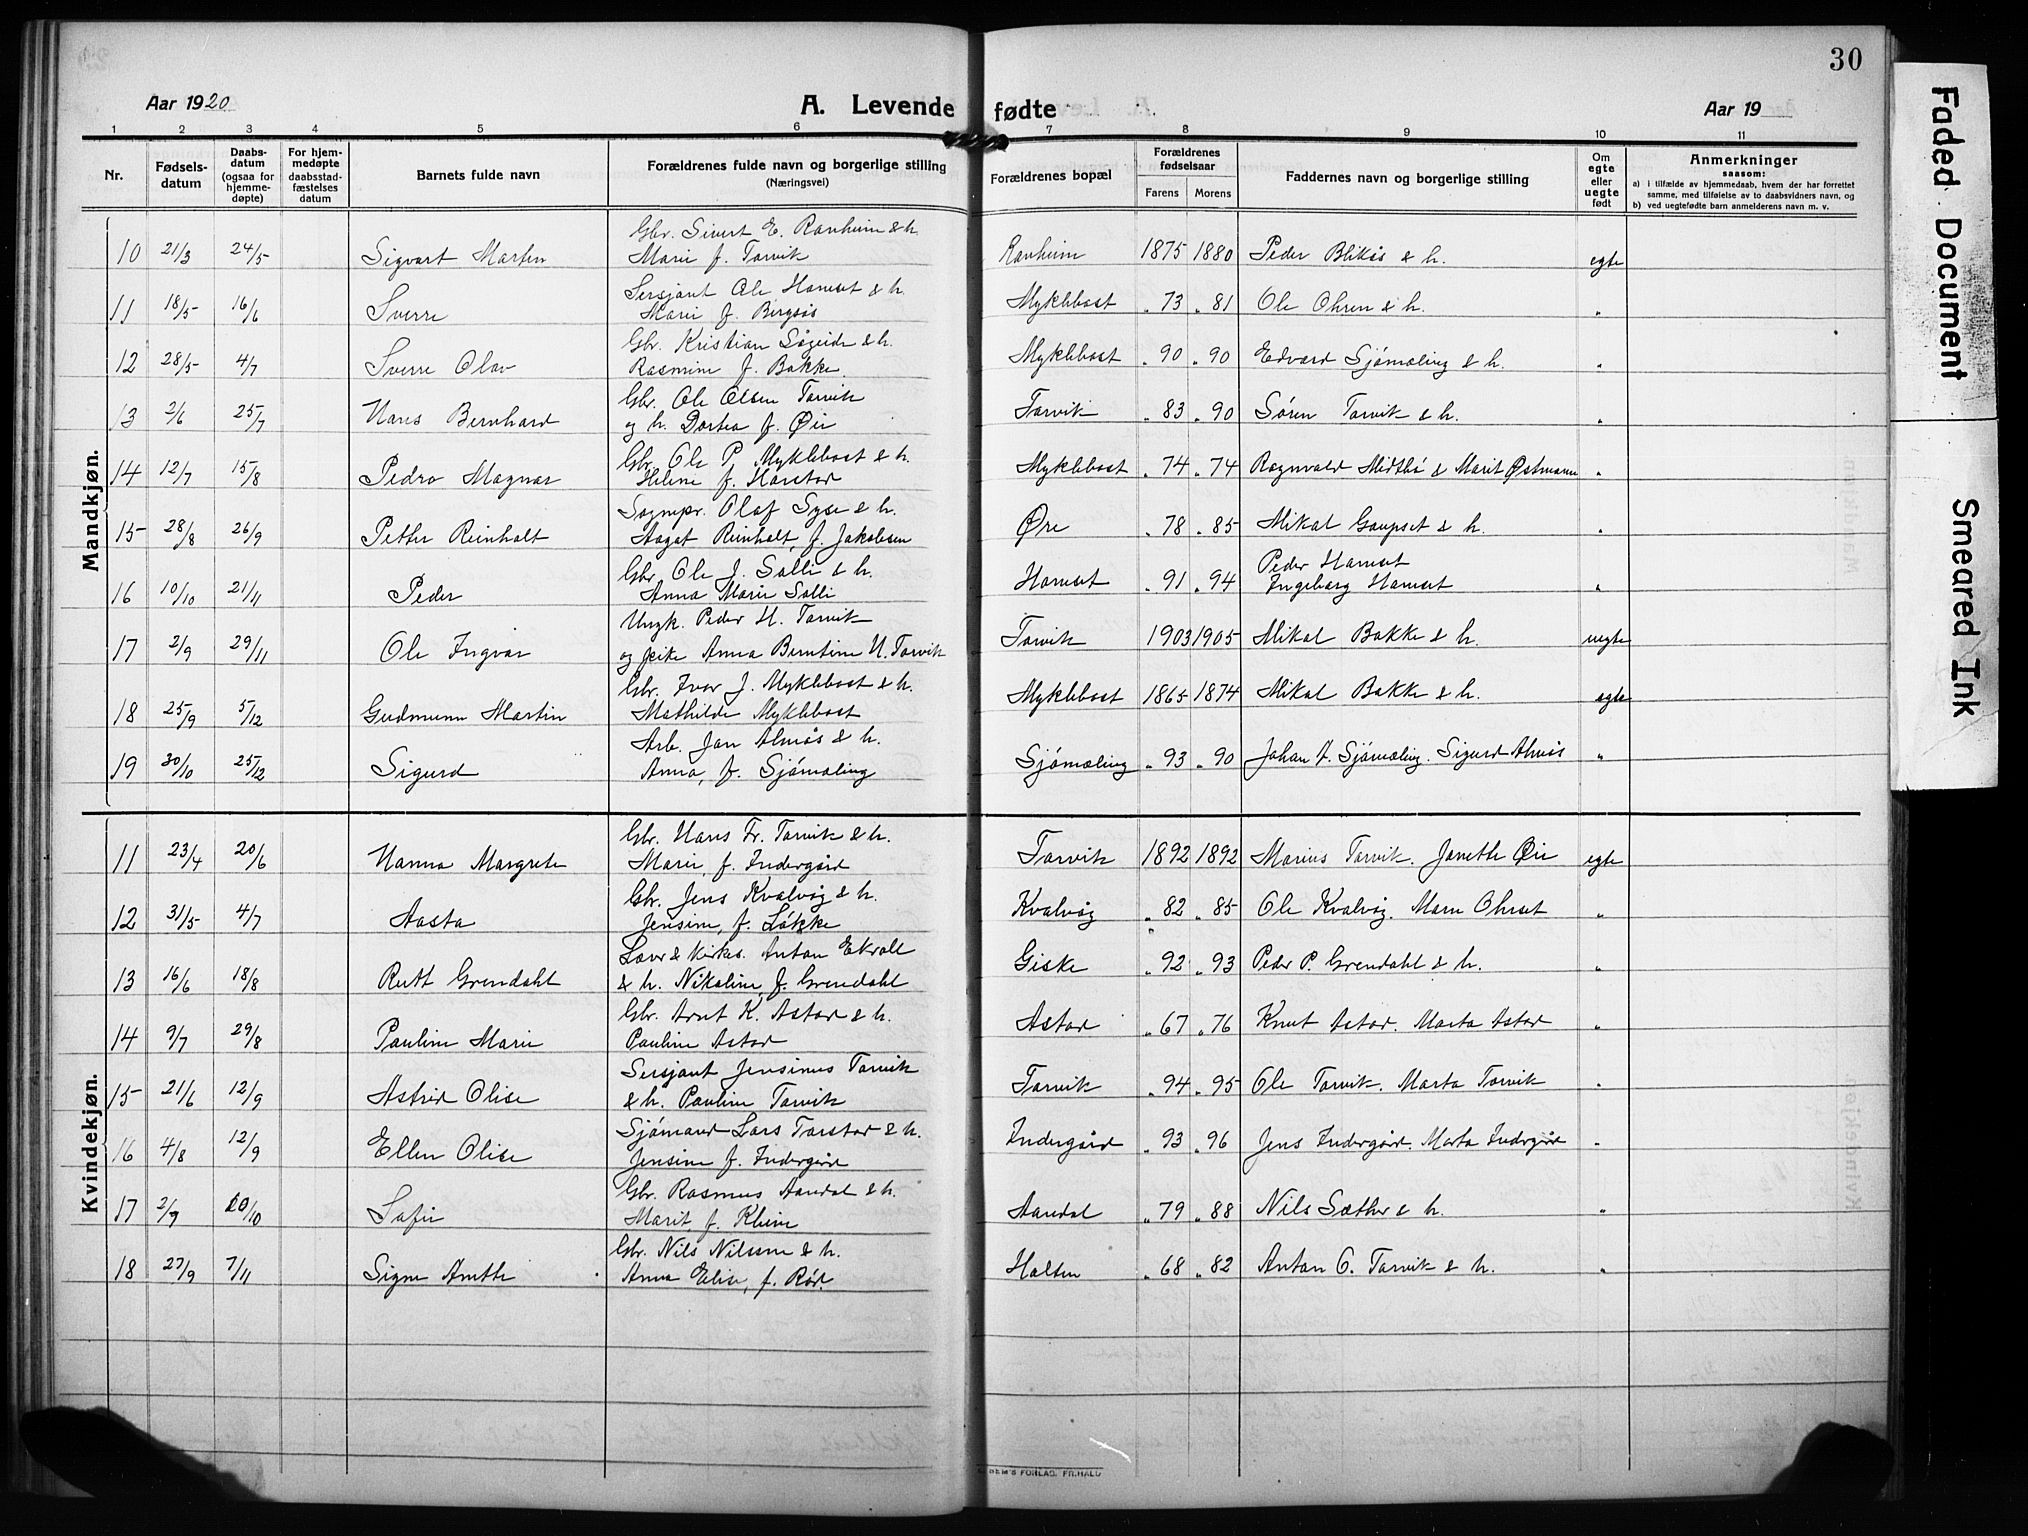 30
Aar 1920
A. Levende fødte
Aar 19
1 2 3 4 5 6 7 8 9 10 11
Nr.
Fødsels-
datum
Daabs-
datum
(ogsaa for
hjemme-
døpte)
For hjem-
medøpte
daabsstad-
fæstelses
datum
Barnets fulde navn
Forældrenes fulde navn og borgerlige stilling
(Næringsvei)
Forældrenes bopæl
Forældrenes
fødselsaar
Farens Morens
Faddernes navn og borgerlige stilling
Om
egte
eller
uegte
født
Anmerkninger
saasom:
a) i tilfælde av hjemmedaab, hvem der har forrettet
samme, med tilføielse av to daabsvidners navn, og
b) ved uegtefødte barn anmelderens navn m. v.
Mandkjøn.
Gbr. Sivert E. Ranheim & h.
10 21/3 24/5 Sigvart Martin Marie f. Torvik Ranheim 1875 1880 Peder Blikås & h. egte
Sersjant Ole Hanset & h.
11 18/5 16/6 Sverre Marie f. Bergsås Myklebost " 73 " 81 Ole Ohren & h. "
Gbr. Kristian Søgeide & h.
12 28/5 4/7 Sverre Olav Rasmine f. Bakke. Myklebost " 90 " 90 Edvard Sjømæling & h. "
Gbr. Ole Olsen Torvik
13 2/6 25/7 Hans Bernhard og h. Dortea f. Øie Torvik " 83 " 90 Søren Torvik & h. "
Gbr. Ole P. Myklebost & h.
14 12/7 15/8 Pedro Magnar Helene f. Harstad Myklebost " 74 " 74 Ragnvald Midtbø & Marit Østmann "
Sognepr. Olaf Syse & h.
15 28/8 26/9 Petter Reinholt Aagot Reinholt, f. Jakobsen Øre " 78 " 85 Mikal Gaupset & h. "
Gbr. Ole J. Solli & h. Peder Hanset
16 10/10 21/11 Peder Anna Marie Solli Hanset " 91 " 94 Ingeborg Hanset "
Ungk. Peder H. Torvik
17 2/9 29/11 Ole Ingvar og pike Anna Berntine N. Torvik Torvik 1903 1905 Mikal Bakke & h. uegte
Gbr. Ivar J. Myklebost & h.
18 25/9 5/12 Gudmunn Martin Mathilde Myklebost Myklebost 1865 1874 Mikal Bakke & h. egte
Arb. Jan Almås & h.
19 30/10 25/12 Sigurd Anna, f. Sjømæling Sjømæling " 93 " 90 Johan A. Sjømæling. Sigurd Almås "
Kvindekjøn.
Gbr. Hans Fr. Torvik & h.
11 23/4 20/6 Hanna Margrete Marie, f. Indergård Torvik 1892 1892 Marius Torvik. Janette Øie egte
Gbr. Jens Kvalvåg & h.
12 31/5 4/7 Aasta Jensine, f. Løkke Kvalvåg " 82 " 85 Ole Kvalvåg. Maren Ohrset "
Lærer & kirkes. Anton Ekroll
13 16/6 18/8 Rutt Grendahl & h. Nikoline, f. Grendahl Giske " 92 " 93 Peder P. Grendahl & h. "
Gbr. Arnt K. Astad & h.
14 9/7 29/8 Pauline Marie Pauline Astad Astad " 67 " 76 Knut Astad. Marta Astad "
Sersjant Jensinus Torvik
15 21/6 12/9 Astrid Olise & h. Pauline Torvik Torvik " 94 " 95 Ole Torvik. Marta Torvik "
Sjømand Lars Torstad & h.
16 4/8 12/9 Ellen Olise Jensine f. Indergård Indergård " 93 " 96 Jens Indergård. Marta Indergård "
Gbr. Rasmus Aandal & h.
17 2/9 20/10 Sofie Marit, f. Kleive Aandal " 79 " 88 Nils Sæther & h. "
Gbr. Nils Nilssen & h.
18 27/9 7/11 Signe Anette Anna Elise, f. Rød. Holten " 68 " 82 Anton O. Torvik & h. "
FORLAG. FR.HALD
Faded Document
Smeared Ink